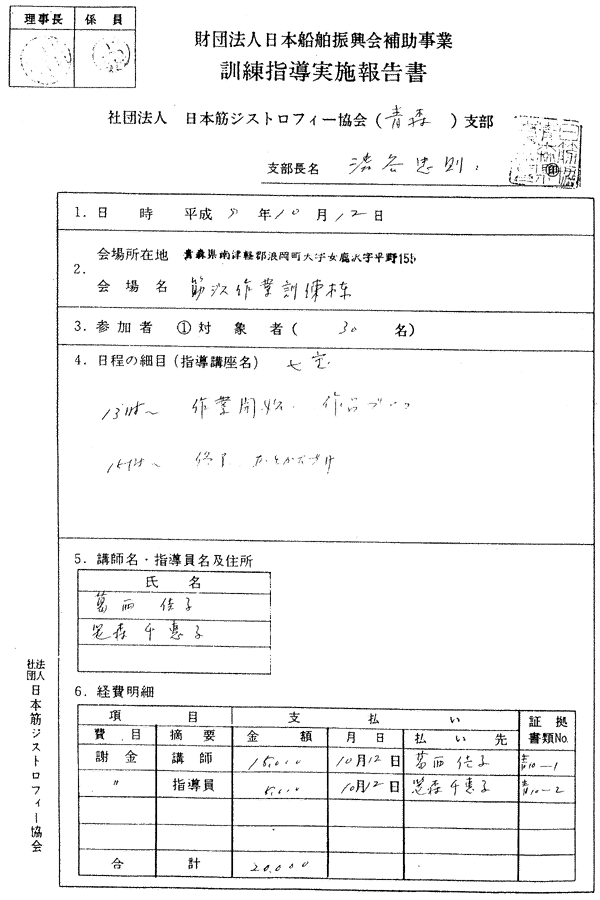 理事長 係員
財団法人日本船舶振興会補助事業
訓練指導実施報告書
社団法人 日本筋ジストロフィー協会(青森)支部
支部長名
印
1. 日 時 平成 年10月12日
2. 会場所在地 青森県南津軽郡浪岡町大字女鹿沢字平野155
会場名 筋ジス作業訓練棟
3. 参加者 ①対象者( 30 名)
4. 日程の細目(指導講座名) 七宝
13時〜 作業開始. 作品づくり
15時〜 終了 あとかたづけ
5. 講師名・指導員名及住所
氏名
葛西 佳子
千恵子
6. 経費明細
項目 支払い 証拠書類No.
費目 摘要 金額 月日 払い先
謝金 講師 15,000 10月12日 葛西 佳子 青10-1
〃 指導員 5,000 10月12日 千恵子 青10-2
合計 20,000
社団法人 日本筋ジストロフィー協会